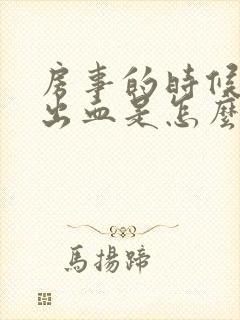 房事的時候
出血是怎麼
馬揚蹄